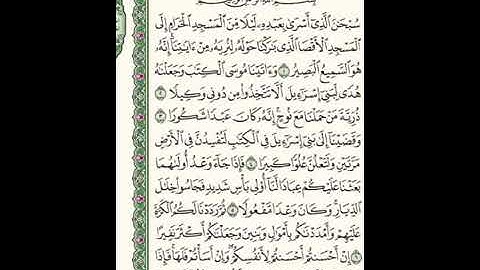 سُبْحَٰنَ ٱلَّذِىٓ أَسْرَىٰ بِعَبْدِهِۦ لَيْلًا مِّنَ ٱلْمَسْجِدِ ٱلْحَرَامِ إِلَى
ٱلْمَسْجِدِ ٱلْأَقْصَا ٱلَّذِى بَٰرَكْنَا حَوْلَهُۥ لِنُرِيَهُۥ مِنْ ءَايَٰتِنَآ إِنَّهُۥ
هُوَ ٱلسَّمِيعُ ٱلْبَصِيرُ ١ وَءَاتَيْنَا مُوسَى ٱلْكِتَٰبَ وَجَعَلْنَٰهُ
هُدًى لِّبَنِىٓ إِسْرَٰٓءِيلَ أَلَّا تَتَّخِذُوا۟ مِن دُونِى وَكِيلًا ٢
ذُرِّيَّةَ مَنْ حَمَلْنَا مَعَ نُوحٍ إِنَّهُۥ كَانَ عَبْدًا شَكُورًا ٣
وَقَضَيْنَآ إِلَىٰ بَنِىٓ إِسْرَٰٓءِيلَ فِى ٱلْكِتَٰبِ لَتُفْسِدُنَّ فِى ٱلْأَرْضِ
مَرَّتَيْنِ وَلَتَعْلُنَّ عُلُوًّا كَبِيرًا ٤ فَإِذَا جَآءَ وَعْدُ أُولَىٰهُمَا
بَعَثْنَا عَلَيْكُمْ عِبَادًا لَّنَآ أُو۟لِى بَأْسٍ شَدِيدٍ فَجَاسُوا۟ خِلَٰلَ
ٱلدِّيَارِ وَكَانَ وَعْدًا مَّفْعُولًا ٥ ثُمَّ رَدَدْنَا لَكُمُ ٱلْكَرَّةَ
عَلَيْهِمْ وَأَمْدَدْنَٰكُم بِأَمْوَٰلٍ وَبَنِينَ وَجَعَلْنَٰكُمْ أَكْثَرَ نَفِيرًا
٦ إِنْ أَحْسَنتُمْ أَحْسَنتُمْ لِأَنفُسِكُمْ وَإِنْ أَسَأْتُمْ فَلَهَا فَإِذَا